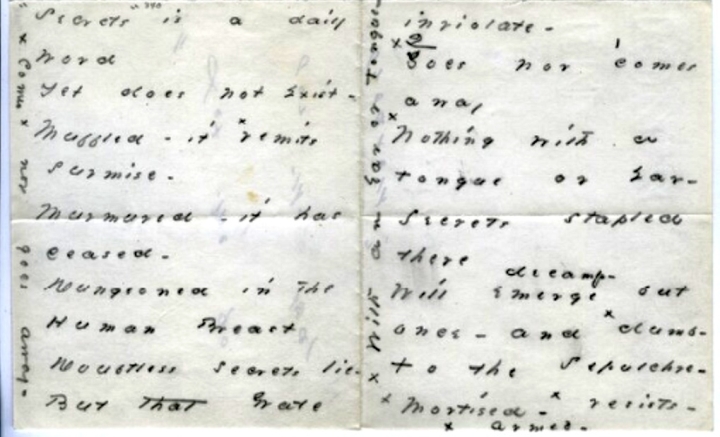 Secrets is a daily
word
Yet does not Exist -
Muffled - it x remits
Surmise -
Murmured - it has
ceased -
Dungeoned in the
Human Breast
Doubtless secrets lie -
But ~~that~~ Grate
x Comes x nor goes away -
inviolate -
x Goes nor comes
away
x Nothing with a
tongue or Ear -
Secrets stapled
there
decamp -
Will Emerge but
once - and x dumb -
to the Sepulchre -
x Mortised - x resists -
x armed -
x x With an Ear or Tongue -